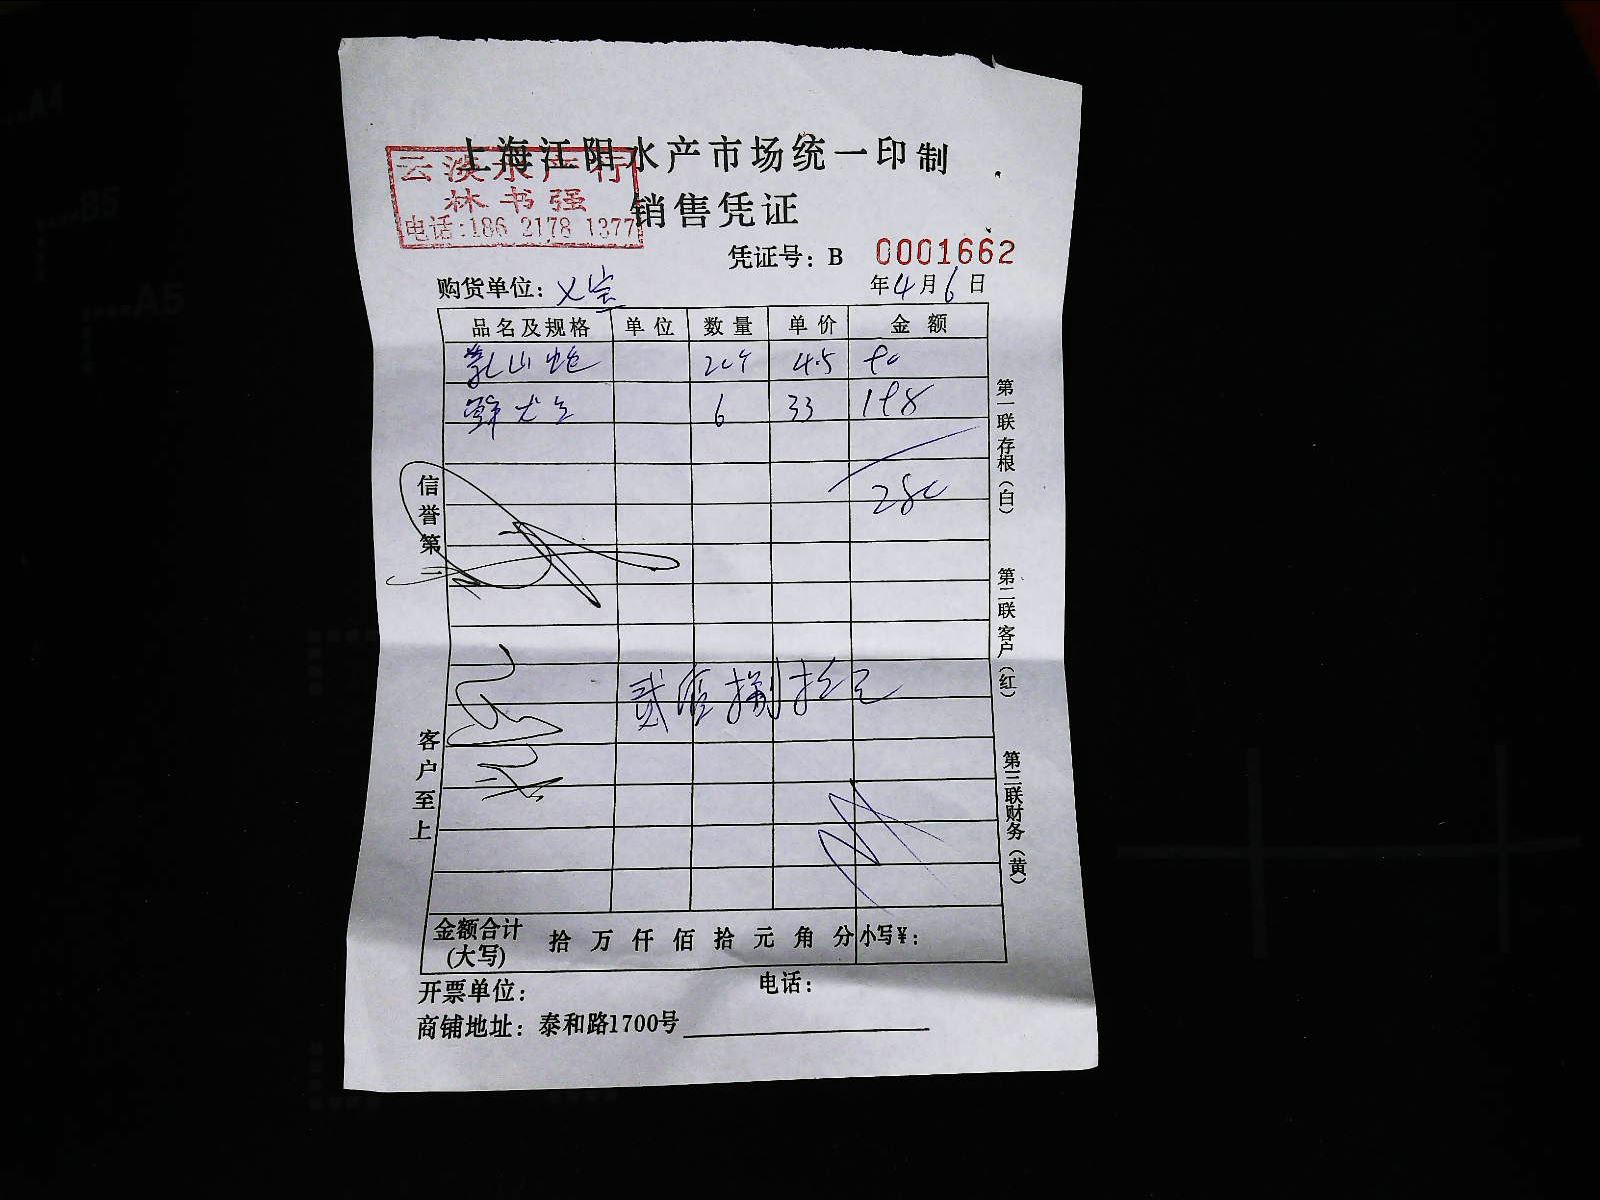 上海江阳水产市场统一印制
云淡水产行
林书强
电话:186 2178 1377
销售凭证
凭证号: B 0001662
购货单位:
年4月6日
品名及规格 单位 数量 单价 金额
乳山蛎 20个 4.5 90
鲜 6 33 198
280
信誉第一
贰佰捌拾元
客户至上
第一联存根(白)
第二联客户(红)
第三联财务(黄)
金额合计(大写) 拾万仟佰拾元角分 小写¥:
开票单位: 电话:
商铺地址: 泰和路1700号